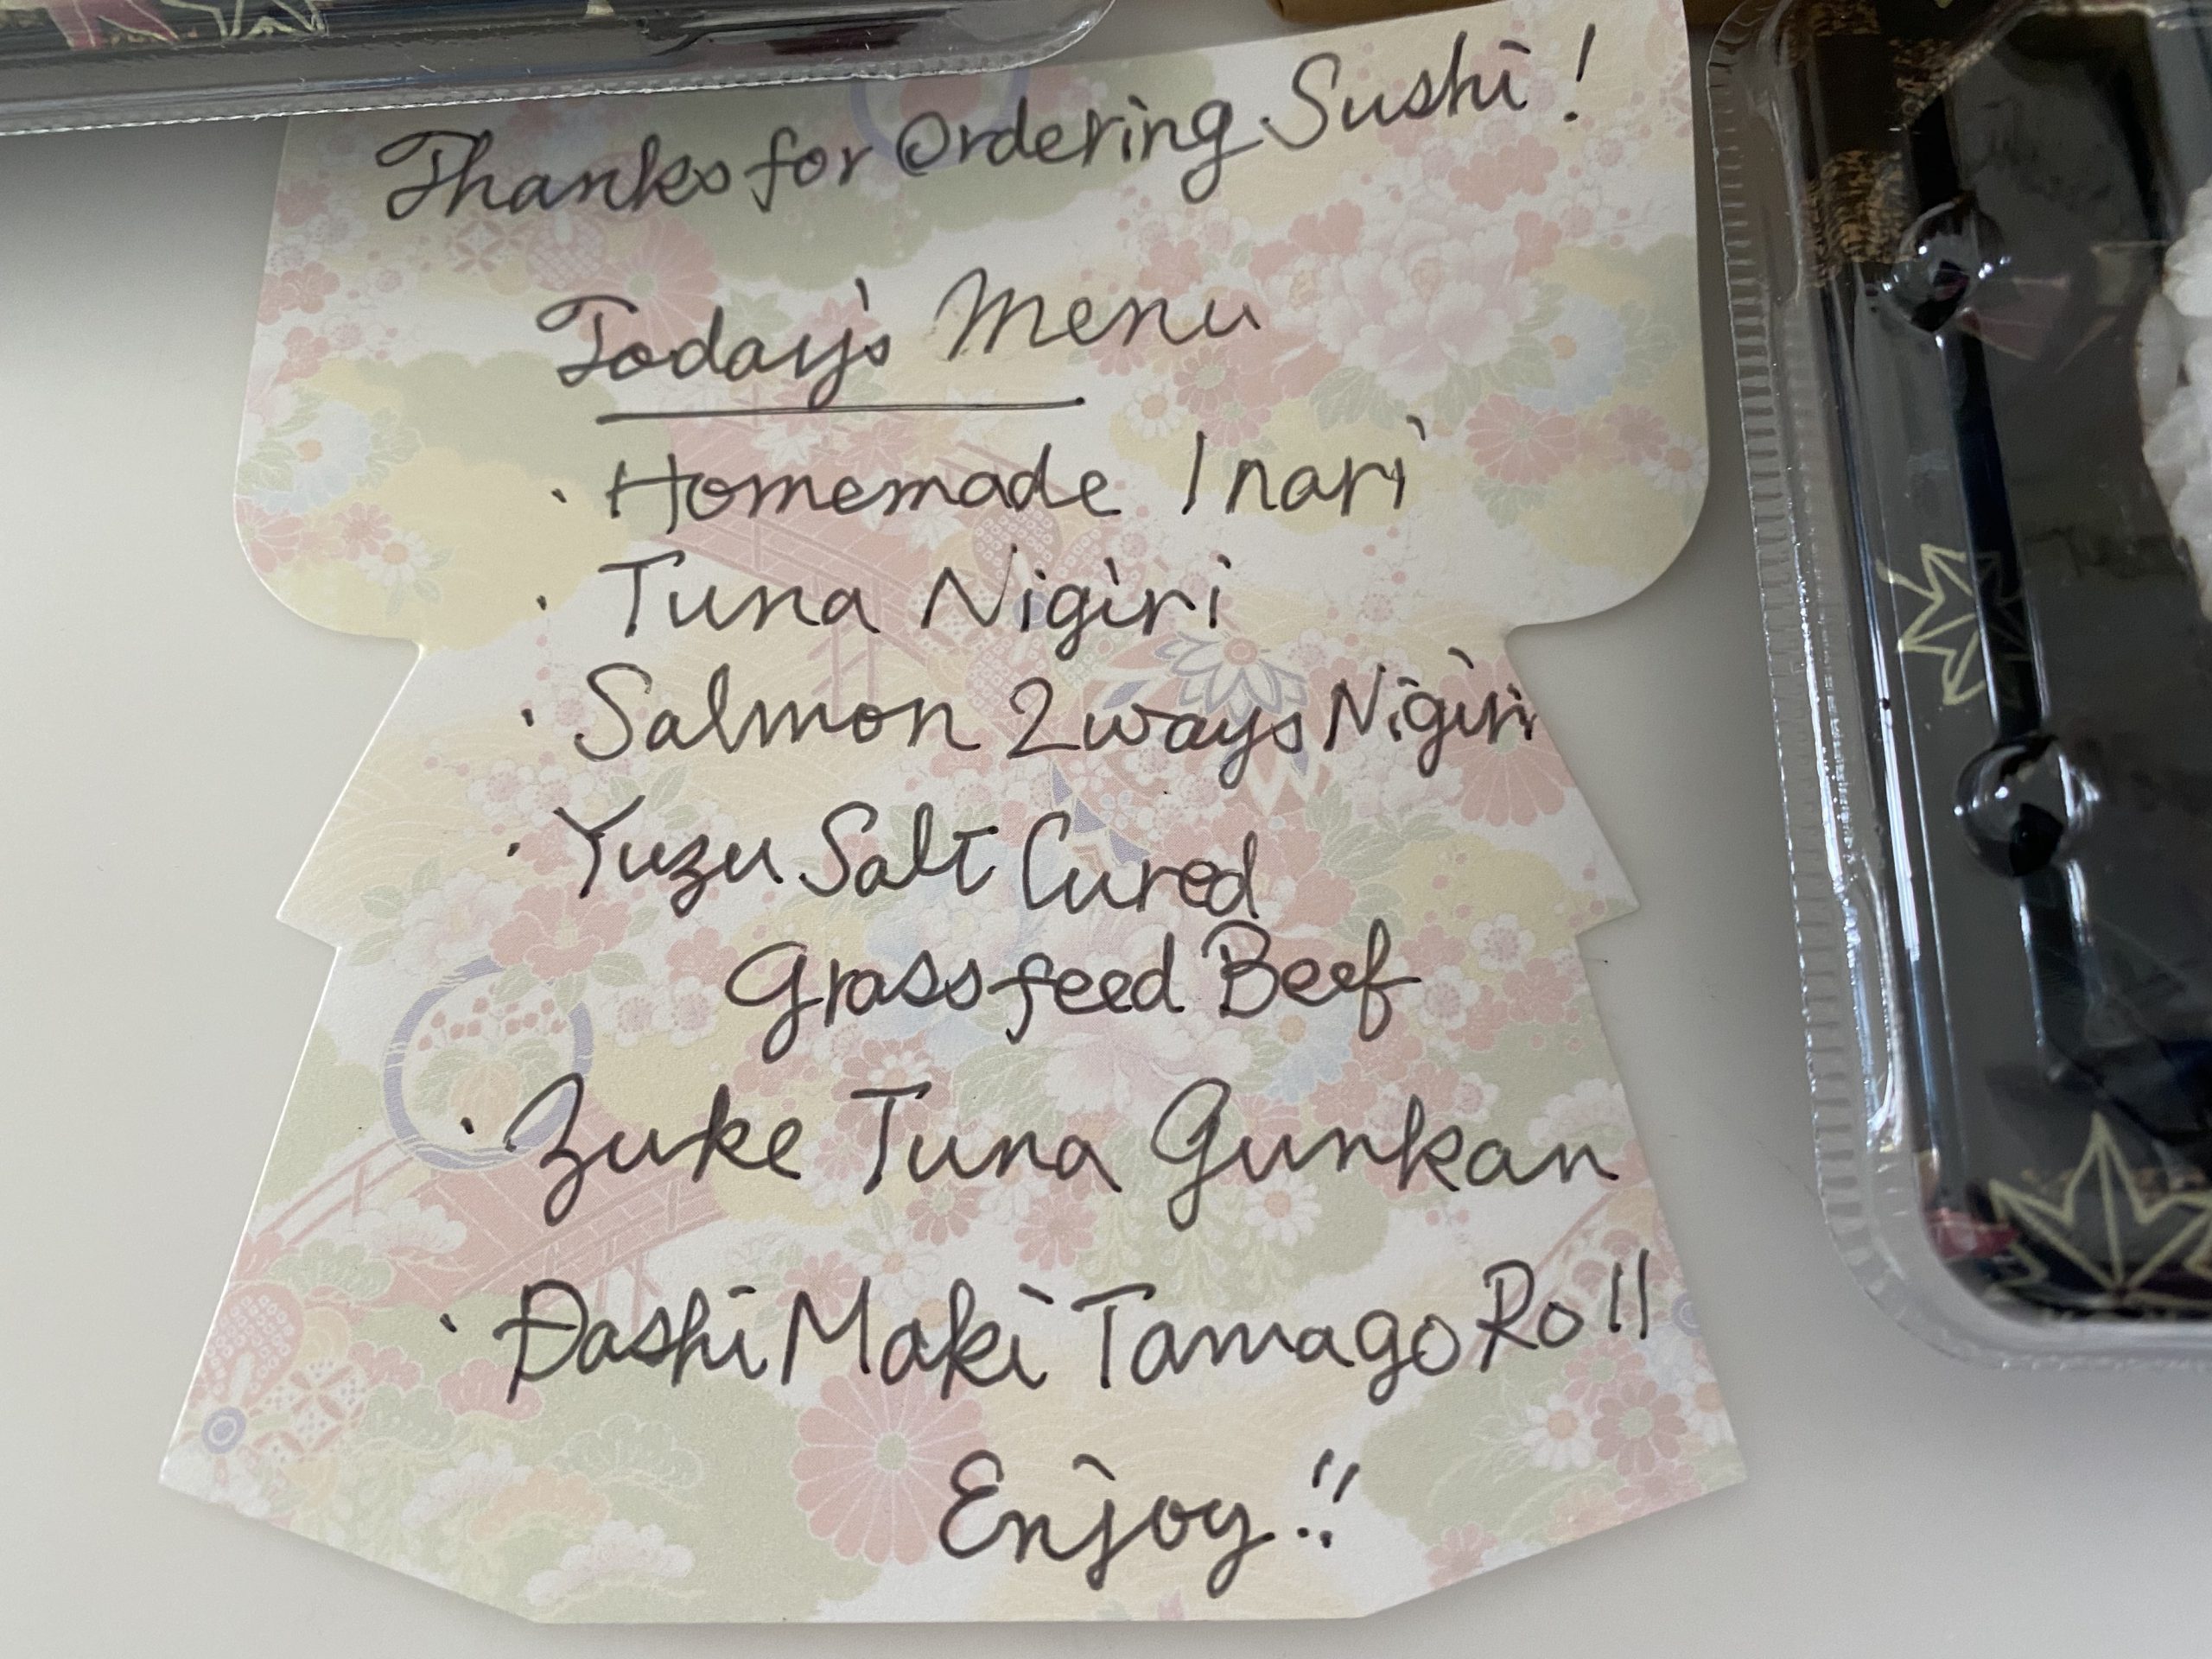 Thanks for Ordering Sushi!
Today's Menu
· Homemade Inari
· Tuna Nigiri
· Salmon 2ways Nigiri
· Yuzu Salt Cured
Grass feed Beef
· Zuke Tuna Gunkan
· Dashi Maki Tamago Roll
Enjoy!!